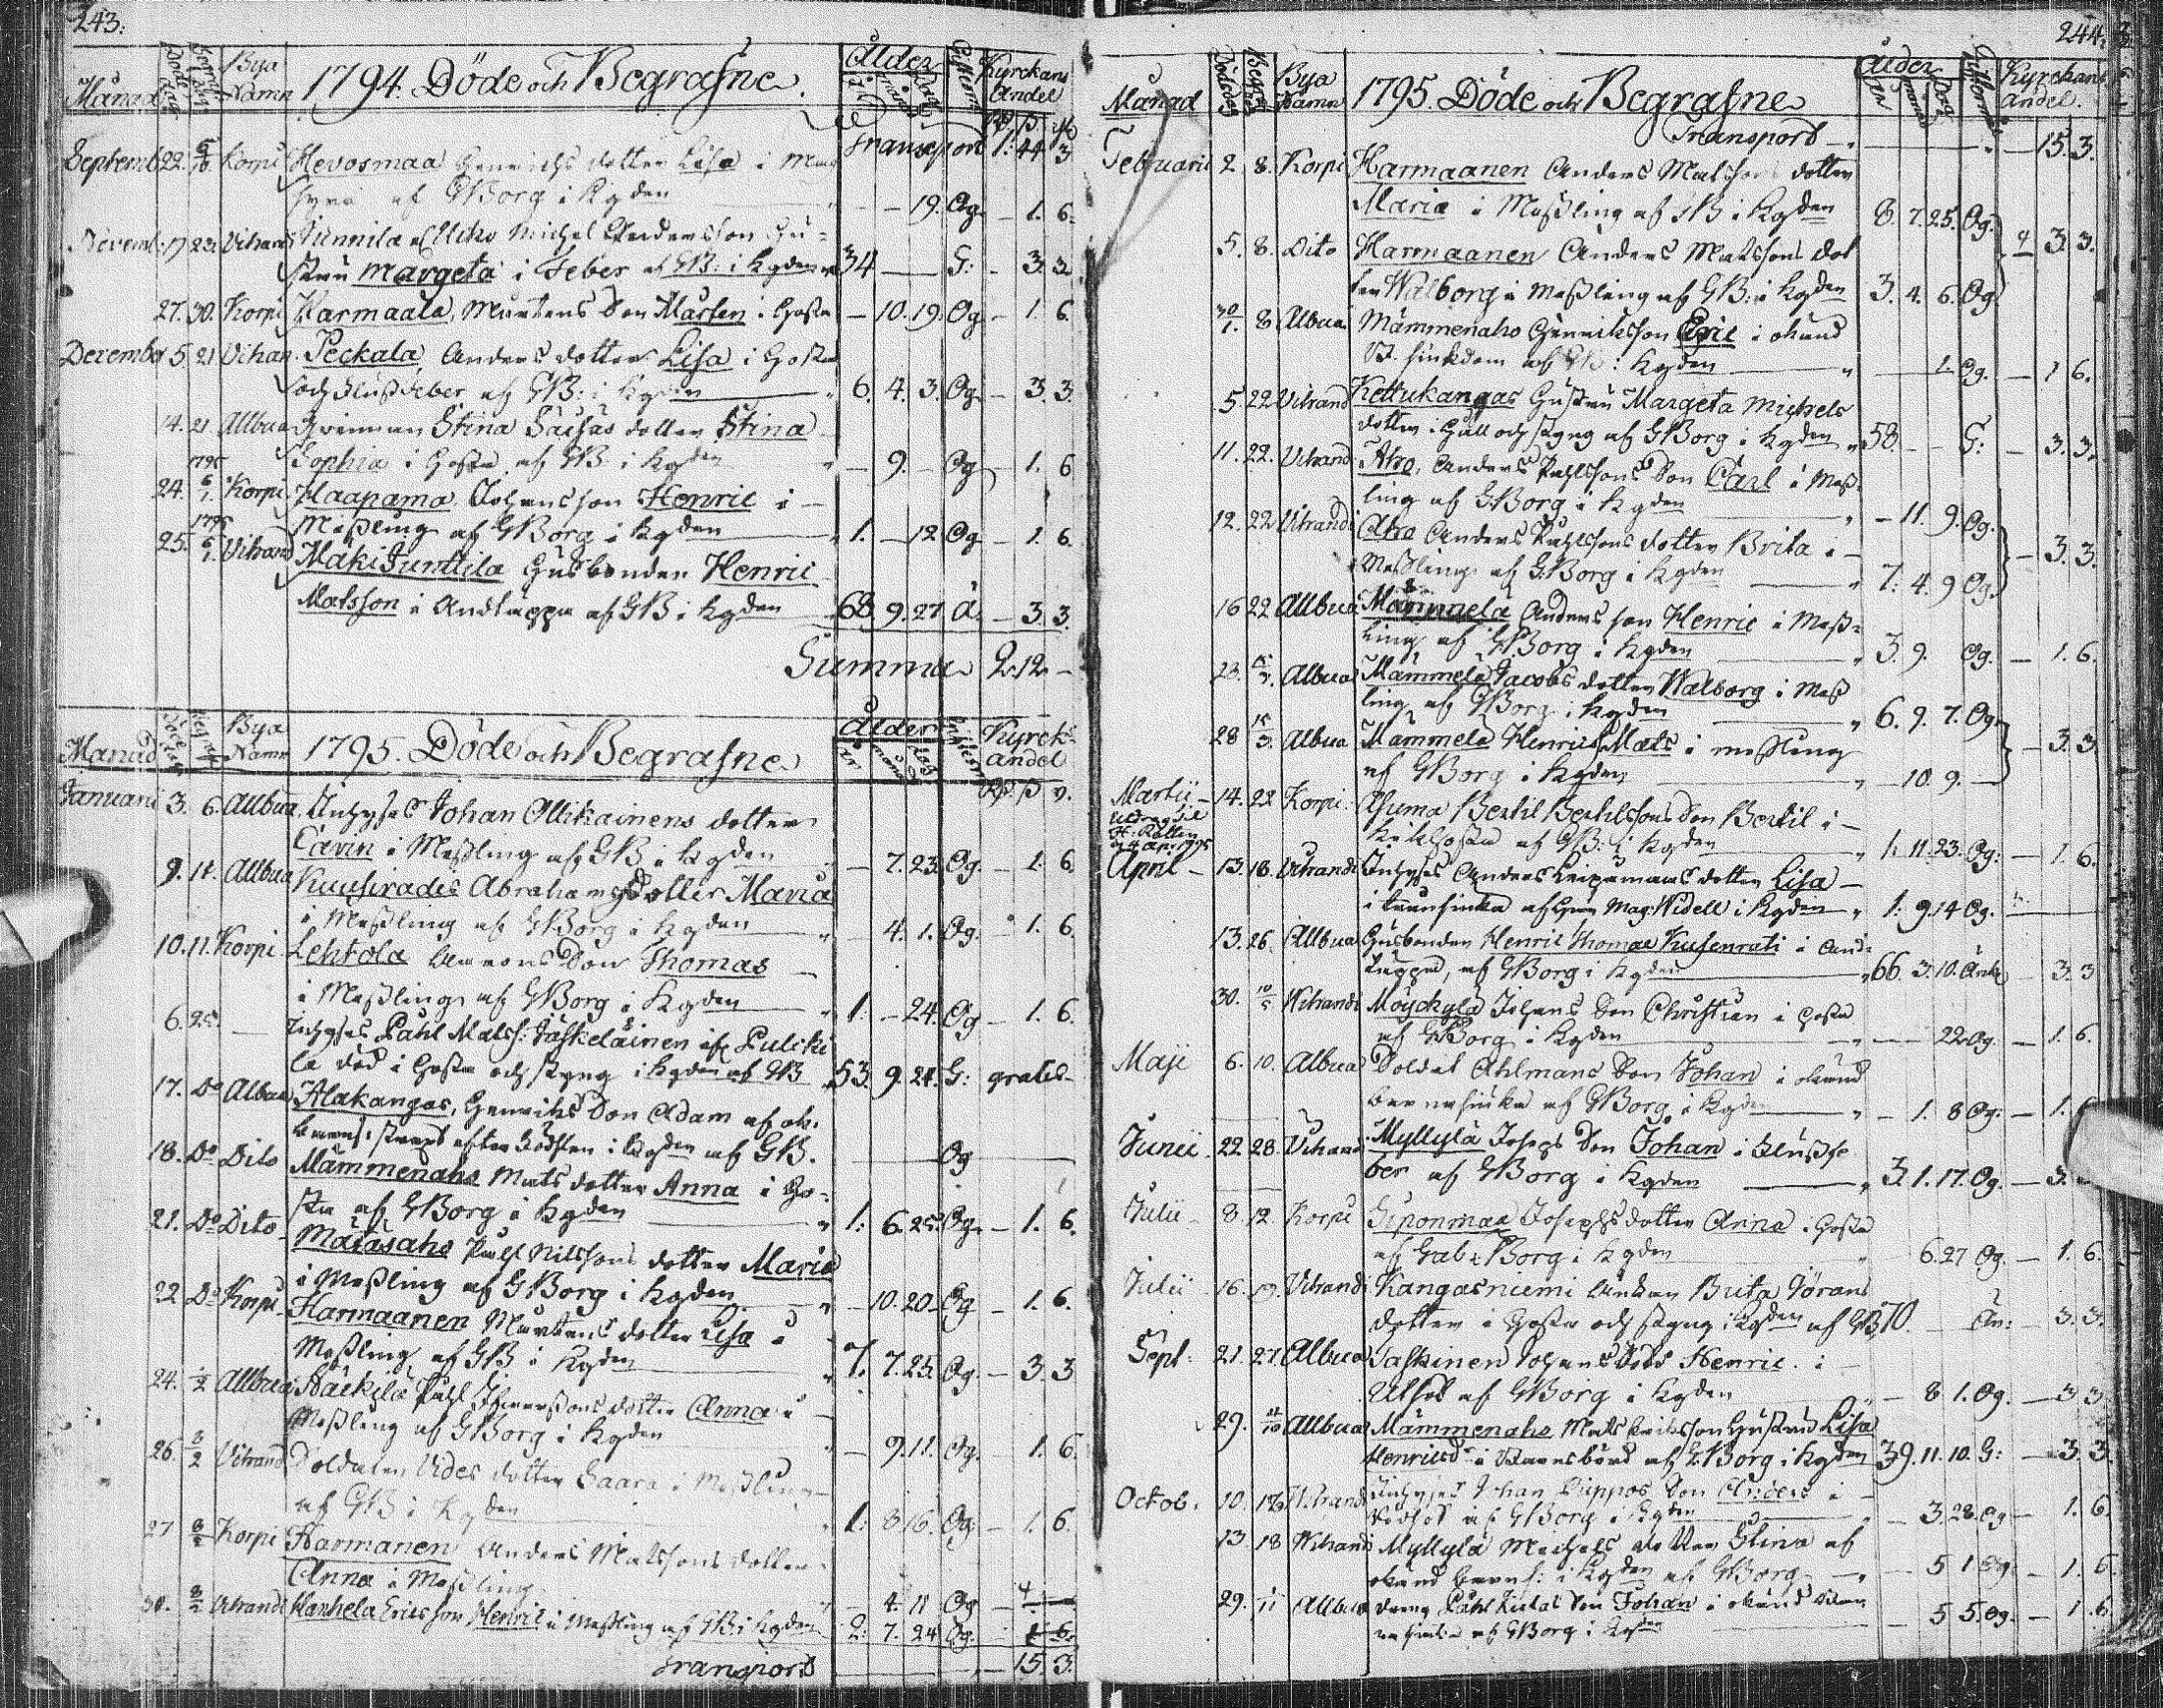 243:
Månad Döde dag Begrafn. dag Bya Namn 1794. Döde och Begrafne. Ålder Kyrckans Andel
Transport 1: 44 3
Septemb 22. Korpi Hevosmaa Henrichs dotter Lisa i
af GBorg i Kyden — 19. Og. — 1. 6.
Novemb: 17 23. Vihand Junnila Michel Andersson Hu=
stru Margeta i Feber af GB: i Kyden 34 — G: — 3. 3.
27. 30. Korpi Karmaala, Mårtens Son Mårten i Hosta — 10. 19. Og — 1. 6.
December 5. 21 Vihan. Peckala Anders dotter Lisa i Hosta
och Flussfeber af GB: i Kyden 6. 4. 3. Og — 3. 3.
14. 21 Allbua Qvinnan Stina dotter Stina
Sophia i Hosta af GB i Kyden — 9. — Og — 1. 6
24. 1795 6/1. Korpi Haapama Johansson Henric i —
Messling af GBorg i Kyden 1. — 12 Og — 1. 6.
25. 1795 6/1. Vihand Mäki Junttila Husbonden Henric
Matsson i Andtäppa af GB i Kyden 68. 9. 27 — 3. 3.
Summa 2. 12. —
Månad Bya Namn 1795. Döde och Begrafne Ålder Kyrck: Andel
Januarii 3. 6. Allbua Inhyses Johan Ollikainens dotter
Carin i Messling af GB i Kyden — 7. 23. Og — 1. 6
9. 11. Allbua Kuusirades Abrahams dotter Maria
i Messling af GBorg i Kyden — 4. 1. Og. — 1. 6.
10. 11. Korpi Lehtola Aarons Son Thomas —
i Messling af GBorg i Kyden 1: — 24. Og — 1. 6.
6. 25. — Inhyses Påhl Matss: Jäskeläinen af Pulcki
la död i Hosta och styng i Kyden af GB 53. 9. 24. G: gratis
17. Do Albua Alakangas, Henrichs Son Adam af ok.
barns: strax efter födslen i Kyden af GB. — Og
18. Do Dito Mämmenaho Mats dotter Anna i Ho=
sta af GBorg i Kyden 1: 6. 25. Og. — 1. 6.
21. Do Dito Matasaho Påhl Nilssons dotter Maria
i Messling af GBorg i Kyden — 10. 20. Og — 1. 6.
22 Do Korpi Harmaanen Mårtens dotter Lisa i
Messling af GB i Kyden 7. 7. 25. Og. — 3. 3
24. 1/2 Allbua Påhl dotter Anna i
Messling af GBorg i Kyden — 9. 11. Og. — 1. 6.
26. 8/2 Vihand Soldaten Vides dotter Saara i Messling
af GB i Kyden 1: 8 16. Og: — 1. 6.
27 8/2 Korpi Harmanen Anders Matssons dotter
Anna i Messling — 4. 11 Og
30. 8/2 Vihandi Hanhela Ericsson Henric i Messling af GB: i Kyden 2: 7. 24 Og. 1 6.
Transport — 15. 3.
244.
Månad Bya Namn 1795. Döde och Begrafne Ålder Kyrckans andel.
Transport — 15. 3.
Februarii 2 8. Korpi Harmaanen Anders Matssons dotter
Maria i Messling af GB i Kyden 8. 7. 25. Og.
5. 8. Dito Harmaanen Anders Matssons dot
ter Walborg i Messling af GB: i Kyden 3. 4. 6. Og. 3. 3.
30/1. 8 Allbua Mämmenaho Henriksson Eric i okänd
sinkdom af GB: i Kyden — Og. — 1 6.
5. 22 Vihand Kettukangas Hustru Margeta Michels
dotter i Håll och styng af GBorg i Kyden 58. — G: — 3. 3.
11. 22. Vihand Aho, Anders Påhlssons Son Carl i Mess=
ling af GBorg i Kyden — 11. 9. Og.
12. 22 Vihandi Aho Anders Påhlssons dotter Brita i —
Messling af GBorg i Kyden 7: 4. 9 Og. — 3. 3.
16 22 Allbua Mämmelä Anders son Henric i Mess=
ling af GBorg i Kyden 3. 9. Og. — 1. 6.
23. 15/3. Allbua Mämmelä Jacobs dotter Walborg i Mess
ling af GBorg i Kyden 6. 9. 7. Og.
28 15/3. Albua Mämmelä Henrics Mats i messling
af GBorg i Kyden — 10. 9. — 3. 3
Martii — 14. 22 Korpi Asuma Bertil Bertilssons Son Bertil i —
Kikhosta af GB: i Kyden 1. 11. 23. Og: — 1. 6.
April — 13. 18. Vihandi Inhyses Anders dotter Lisa —
i af Mag: Widell i Kyden 1: 9. 14 Og.
13. 26. Allbua Husbonden Henric Thomae Kusenrati i And=
täppa, af GBorg i Kyden 66. 3. 10. Änkl — 3. 3
30. 10/5 Vihandi Möyckylä Johans Son Christian i Hosta
af GBorg i Kyden — 22. Og. — 1. 6.
Maji 6. 10. Albua Soldat Ahlmans Son Johan i okänd
barnasiuka af GBorg i Kyden — 1. 8 Og: — 1. 6
Junii 22. 28. Vihand Myllylä Josephs Son Johan i Flussfe
ber af GBorg i Kyden 3. 1. 17. Og. — 3.
Julii 8. 12 Korpi Siponmaa Josephs dotter Anna i Hosta
af Gab: Borg i Kyden 6. 27 Og. — 1. 6.
Julii 16. 19. Vihandi Kangasniemi Änkan Brita Jörans
dotter i Hosta och styng i Kyden af GB 70. — Än: — 3. 3.
Sept. 21. 27. Allbua Taskinen Johans Son Henric i
Utsot af GBorg i Kyden — 8 1. Og. — 3 3.
29. 11/10 Allbua Mämmenaho Mats Hustru Lisa
Henricsdr i Barnsbörd af GBorg i Kyden 39. 11. 10. G: — 3. 3.
Octob. 10. 18 Vihandi Inhyses Johan Son Anders i —
Rödsot af GBorg i Kyden — 3. 28. Og — 1. 6.
13. 18 Wihandi Myllylä Michels dotter Stina af
okänd barns: i Kyden af GBorg — 5 1 Og: — 1. 6
29. Allbua Dreng Påhl Son Johan i okänd barn
af GBorg i Kyden — 5 5 Og. — 1. 6.